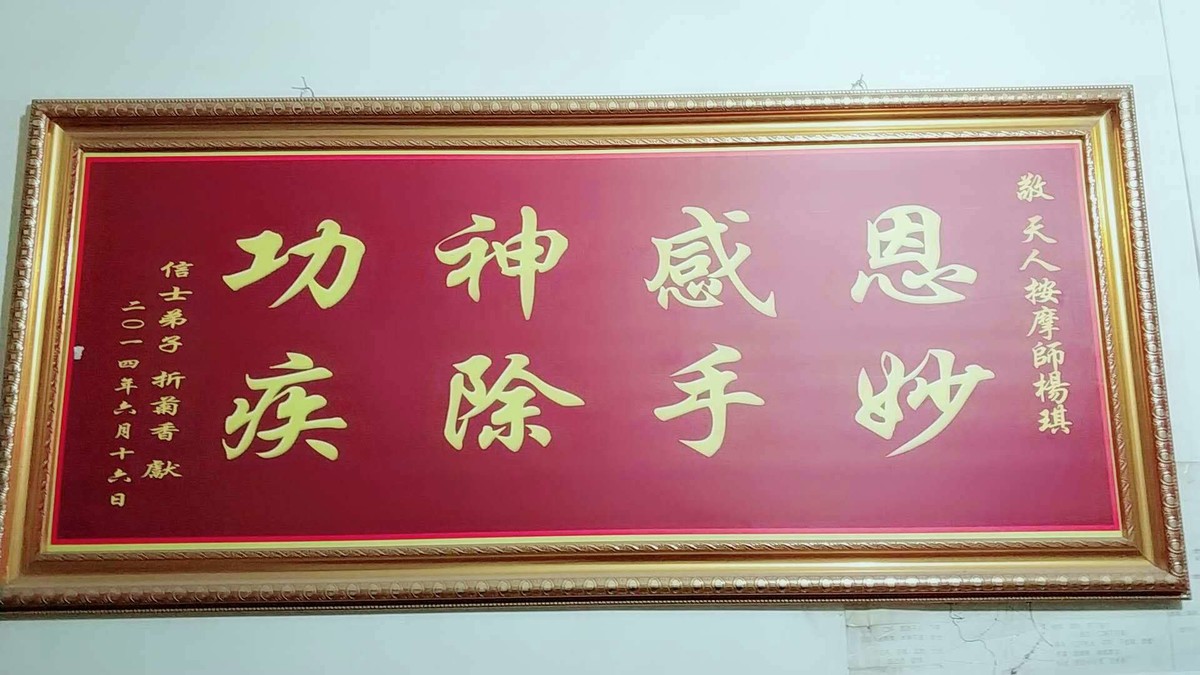 敬 天人按摩師楊琪
恩感神功
妙手除疾
信士弟子 折菊香 獻
二〇一四年六月十六日